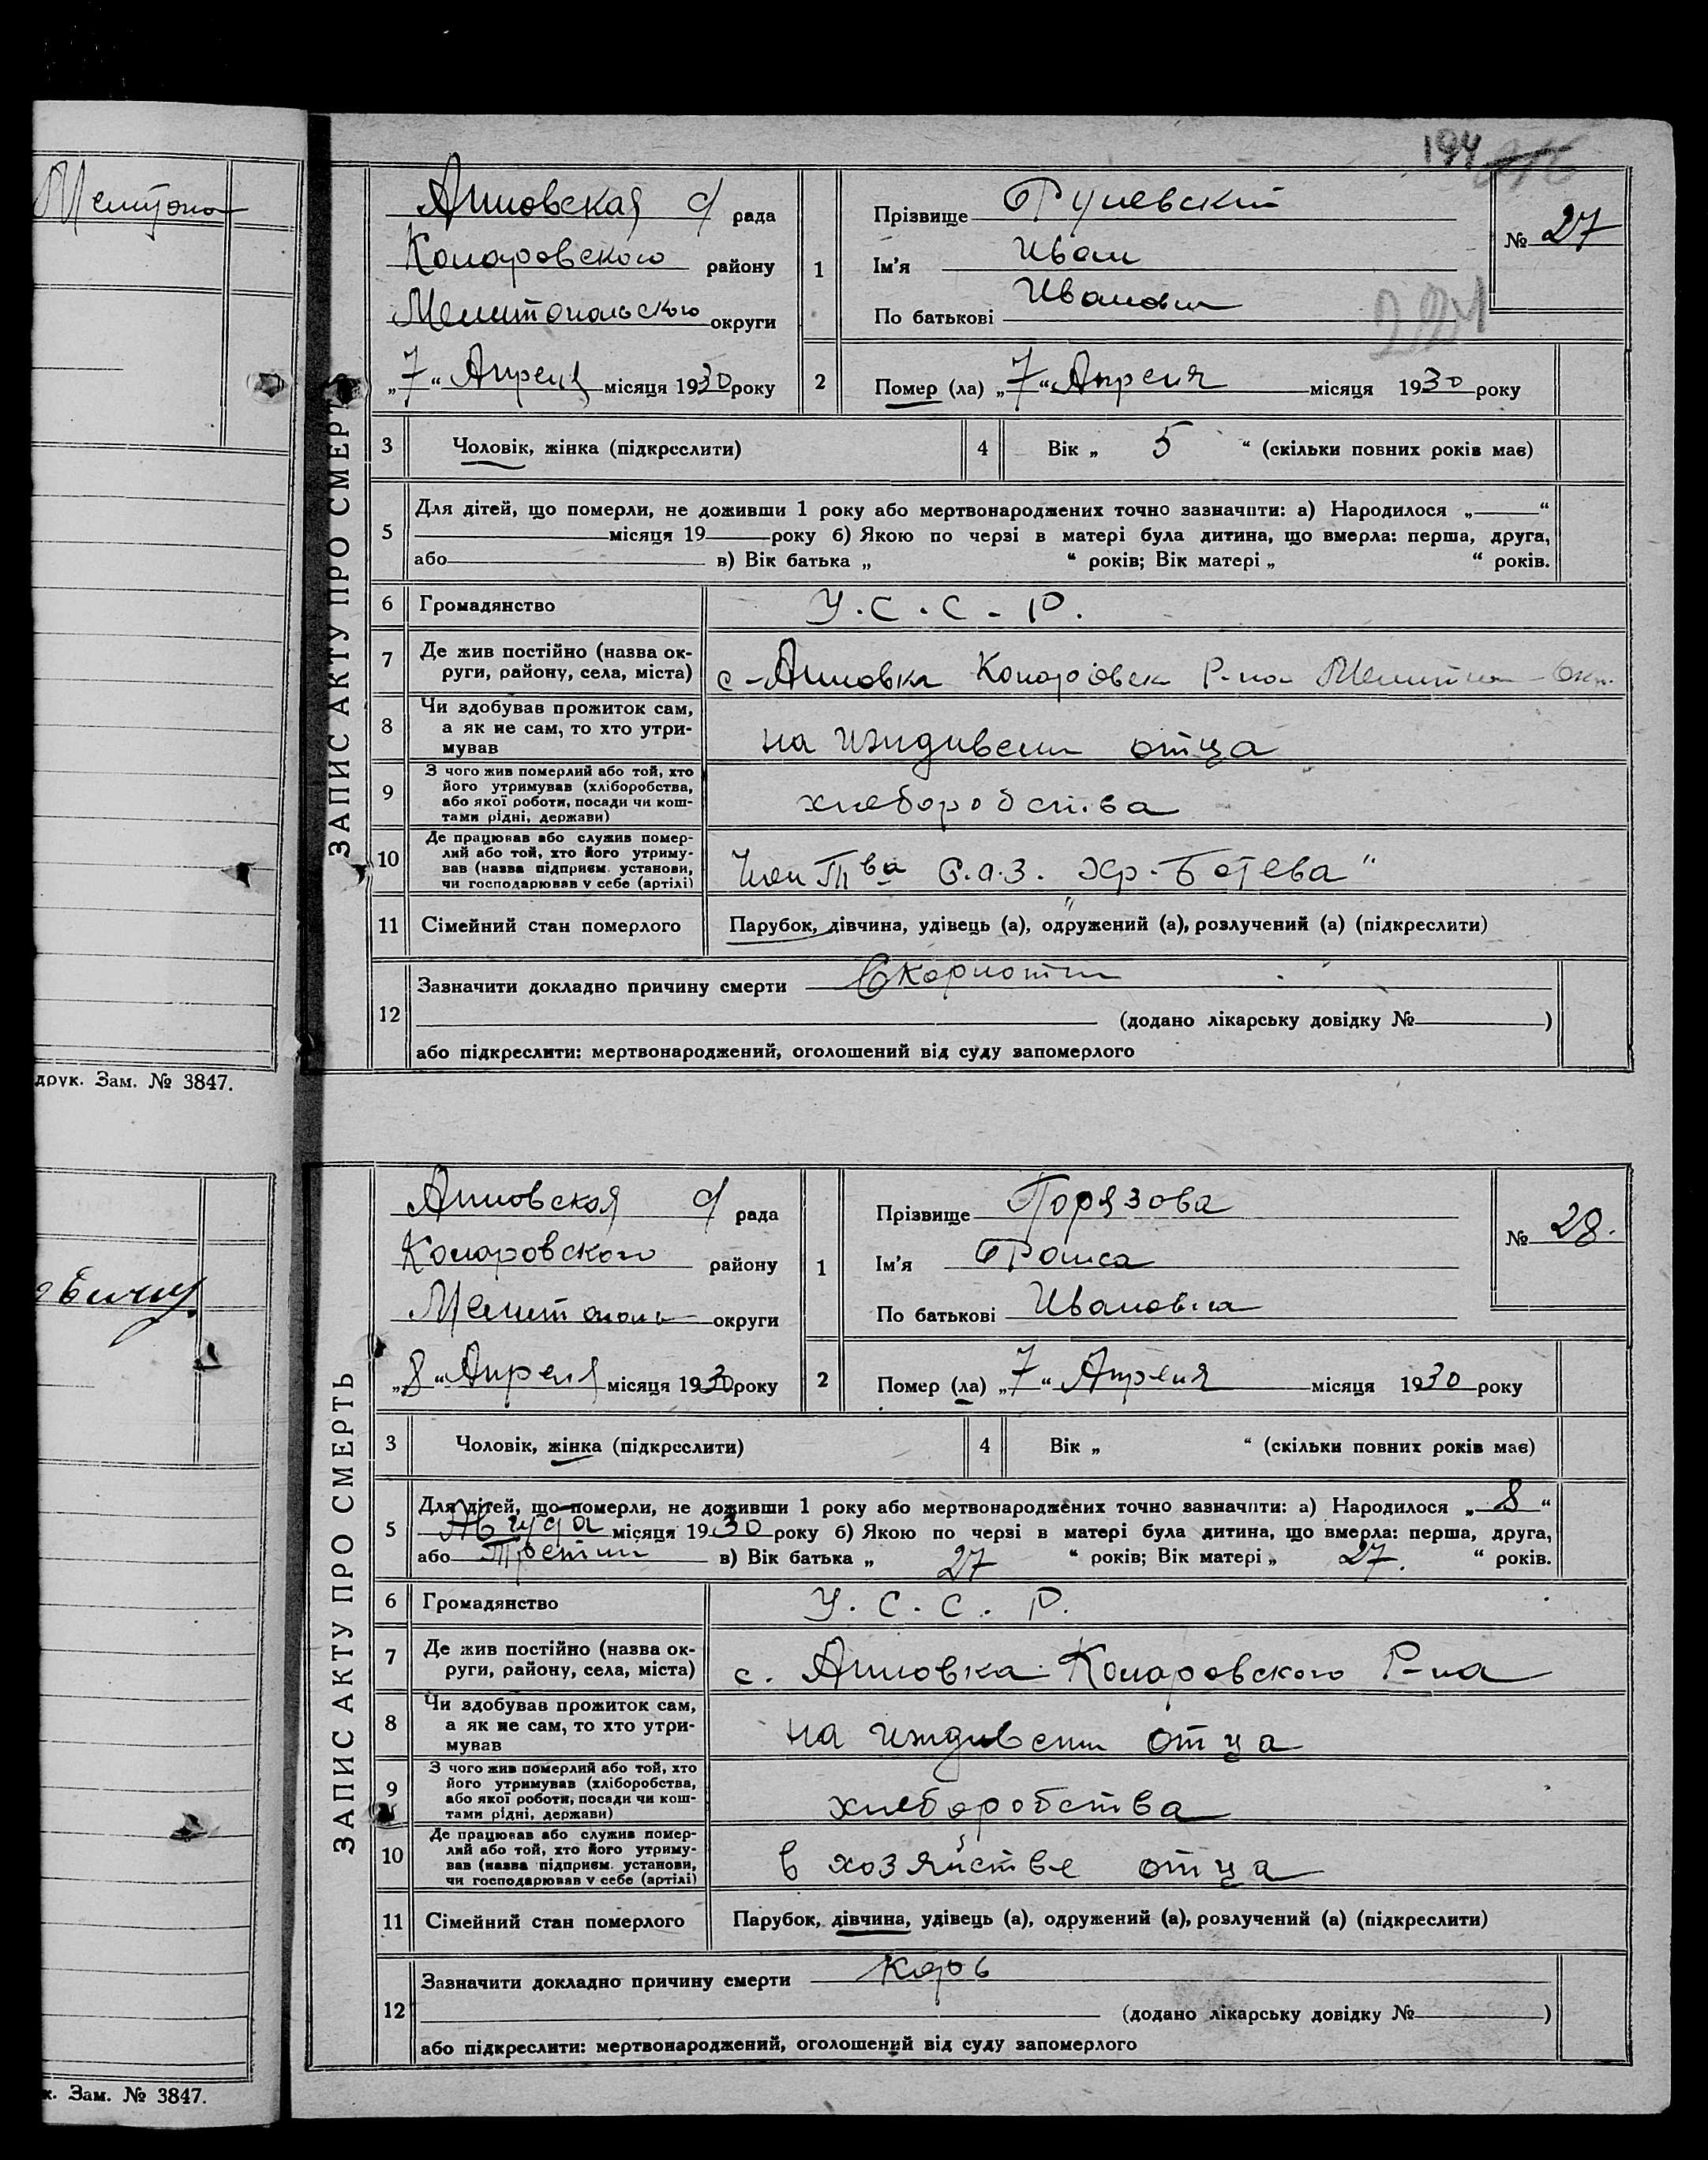 194
Мелитопол
друк. Зам. № 3847.
к. Зам. № 3847.
ЗАПИС АКТУ ПРО СМЕРТЬ
Анновская с/ рада
Коларовского району
Мелитопольского округи
„7“ Апреля місяця 1930 року
1
Прізвище
Ім'я Иван
По батькові Иванович
№ 27
2
Помер (ла) „7“ Апреля місяця 1930 року
3 Чоловік, жінка (підкреслити)
4 Вік „ 5 “ (скільки повних років має)
5 Для дітей, що померли, не доживши 1 року або мертвонароджених точно зазначити: а) Народилося „ “
місяця 19 року б) Якою по черзі в матері була дитина, що вмерла: перша, друга,
або в) Вік батька „ “ років; Вік матері „ “ років.
6 Громадянство У.С.С.Р.
7 Де жив постійно (назва ок-
руги, району, села, міста) с-Анновка Коларовск Р-на Мелитоп-Окр.
8 Чи здобував прожиток сам,
а як не сам, то хто утри-
мував на иждивении отца
9 З чого жив померлий або той, хто
його утримував (хліборобства,
або якої роботи, посади чи кош-
тами рідні, держави) хлеборобства
10 Де працював або служив помер-
лий або той, хто його утриму-
вав (назва підприєм. установи,
чи господарював у себе (артілі) Член Тва С.О.З. „Хр. Ботева“
11 Сімейний стан померлого Парубок, дівчина, удівець (а), одружений (а), розлучений (а) (підкреслити)
12 Зазначити докладно причину смерти Скорлотин
(додано лікарську довідку № )
або підкреслити: мертвонароджений, оголошений від суду запомерлого
ЗАПИС АКТУ ПРО СМЕРТЬ
Анновская с/ рада
Коларовского району
Мелитополь округи
„8“ Апреля місяця 1930 року
1
Прізвище Порязова
Ім'я
По батькові Ивановна
№ 28.
2
Помер (ла) „7“ Апреля місяця 1930 року
3 Чоловік, жінка (підкреслити)
4 Вік „ “ (скільки повних років має)
5 Для дітей, що померли, не доживши 1 року або мертвонароджених точно зазначити: а) Народилося „8“
місяця 1930 року б) Якою по черзі в матері була дитина, що вмерла: перша, друга,
або Третий в) Вік батька „ 27 “ років; Вік матері „ 27. “ років.
6 Громадянство У.С.С.Р.
7 Де жив постійно (назва ок-
руги, району, села, міста) с. Анновка Коларовского Р-на
8 Чи здобував прожиток сам,
а як не сам, то хто утри-
мував на иждивении отца
9 З чого жив померлий або той, хто
його утримував (хліборобства,
або якої роботи, посади чи кош-
тами рідні, держави) хлеборобства
10 Де працював або служив помер-
лий або той, хто його утриму-
вав (назва підприєм. установи,
чи господарював у себе (артілі) в хозяйстве отца
11 Сімейний стан померлого Парубок, дівчина, удівець (а), одружений (а), розлучений (а) (підкреслити)
12 Зазначити докладно причину смерти Корь
(додано лікарську довідку № )
або підкреслити: мертвонароджений, оголошений від суду запомерлого